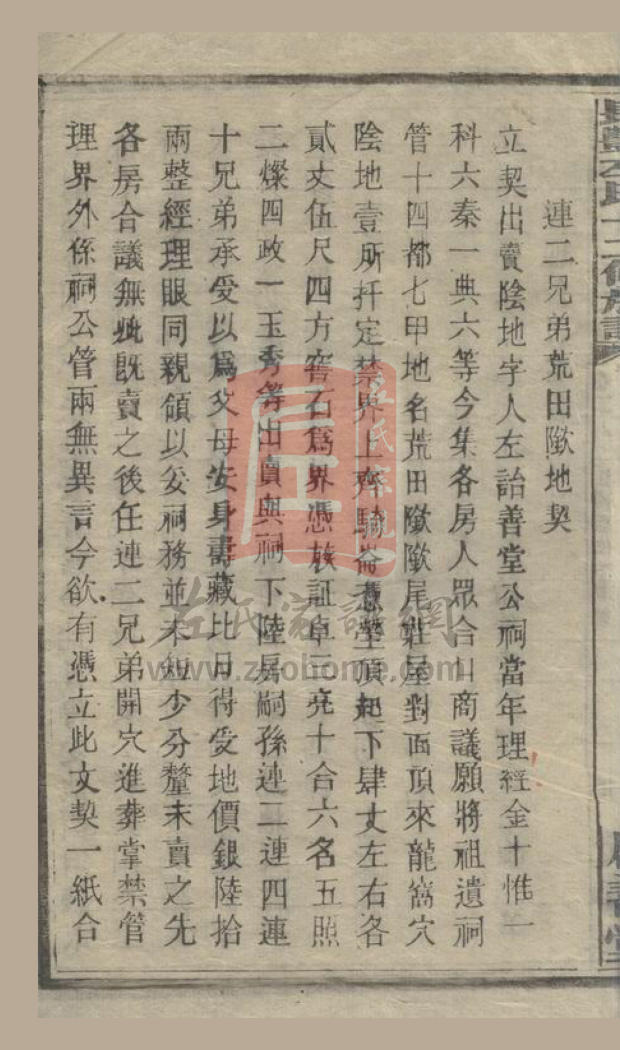 連二兄弟荒田歘地契
立契出賣陰地字人左詒善堂公祠當年理經金十惟一
科六秦一典六等今集各房人眾合口商議願將祖遺祠
管十四都七甲地名荒田歘歘尾莊屋對面頂來龍窩穴
陰地壹所扦定禁界上齊騎崙憑塋頂起下肆丈左右各
貳丈伍尺四方窖石爲界憑族証卓三亮十合六名五照
二燦四政一玉秀等出賣與祠下陸房嗣孫連二連四連
十兄弟承受以爲父母安身壽藏比日得受地價銀陸拾
兩整經理眼同親領以妥祠務並未短少分釐未賣之先
各房合議無妣既賣之後任連二兄弟開穴進葬掌禁管
理界外係祠公管兩無異言今欲有憑立此文契一紙合
左氏十二修族譜
善堂
左氏宗親
左氏家譜網
www.zuohome.com